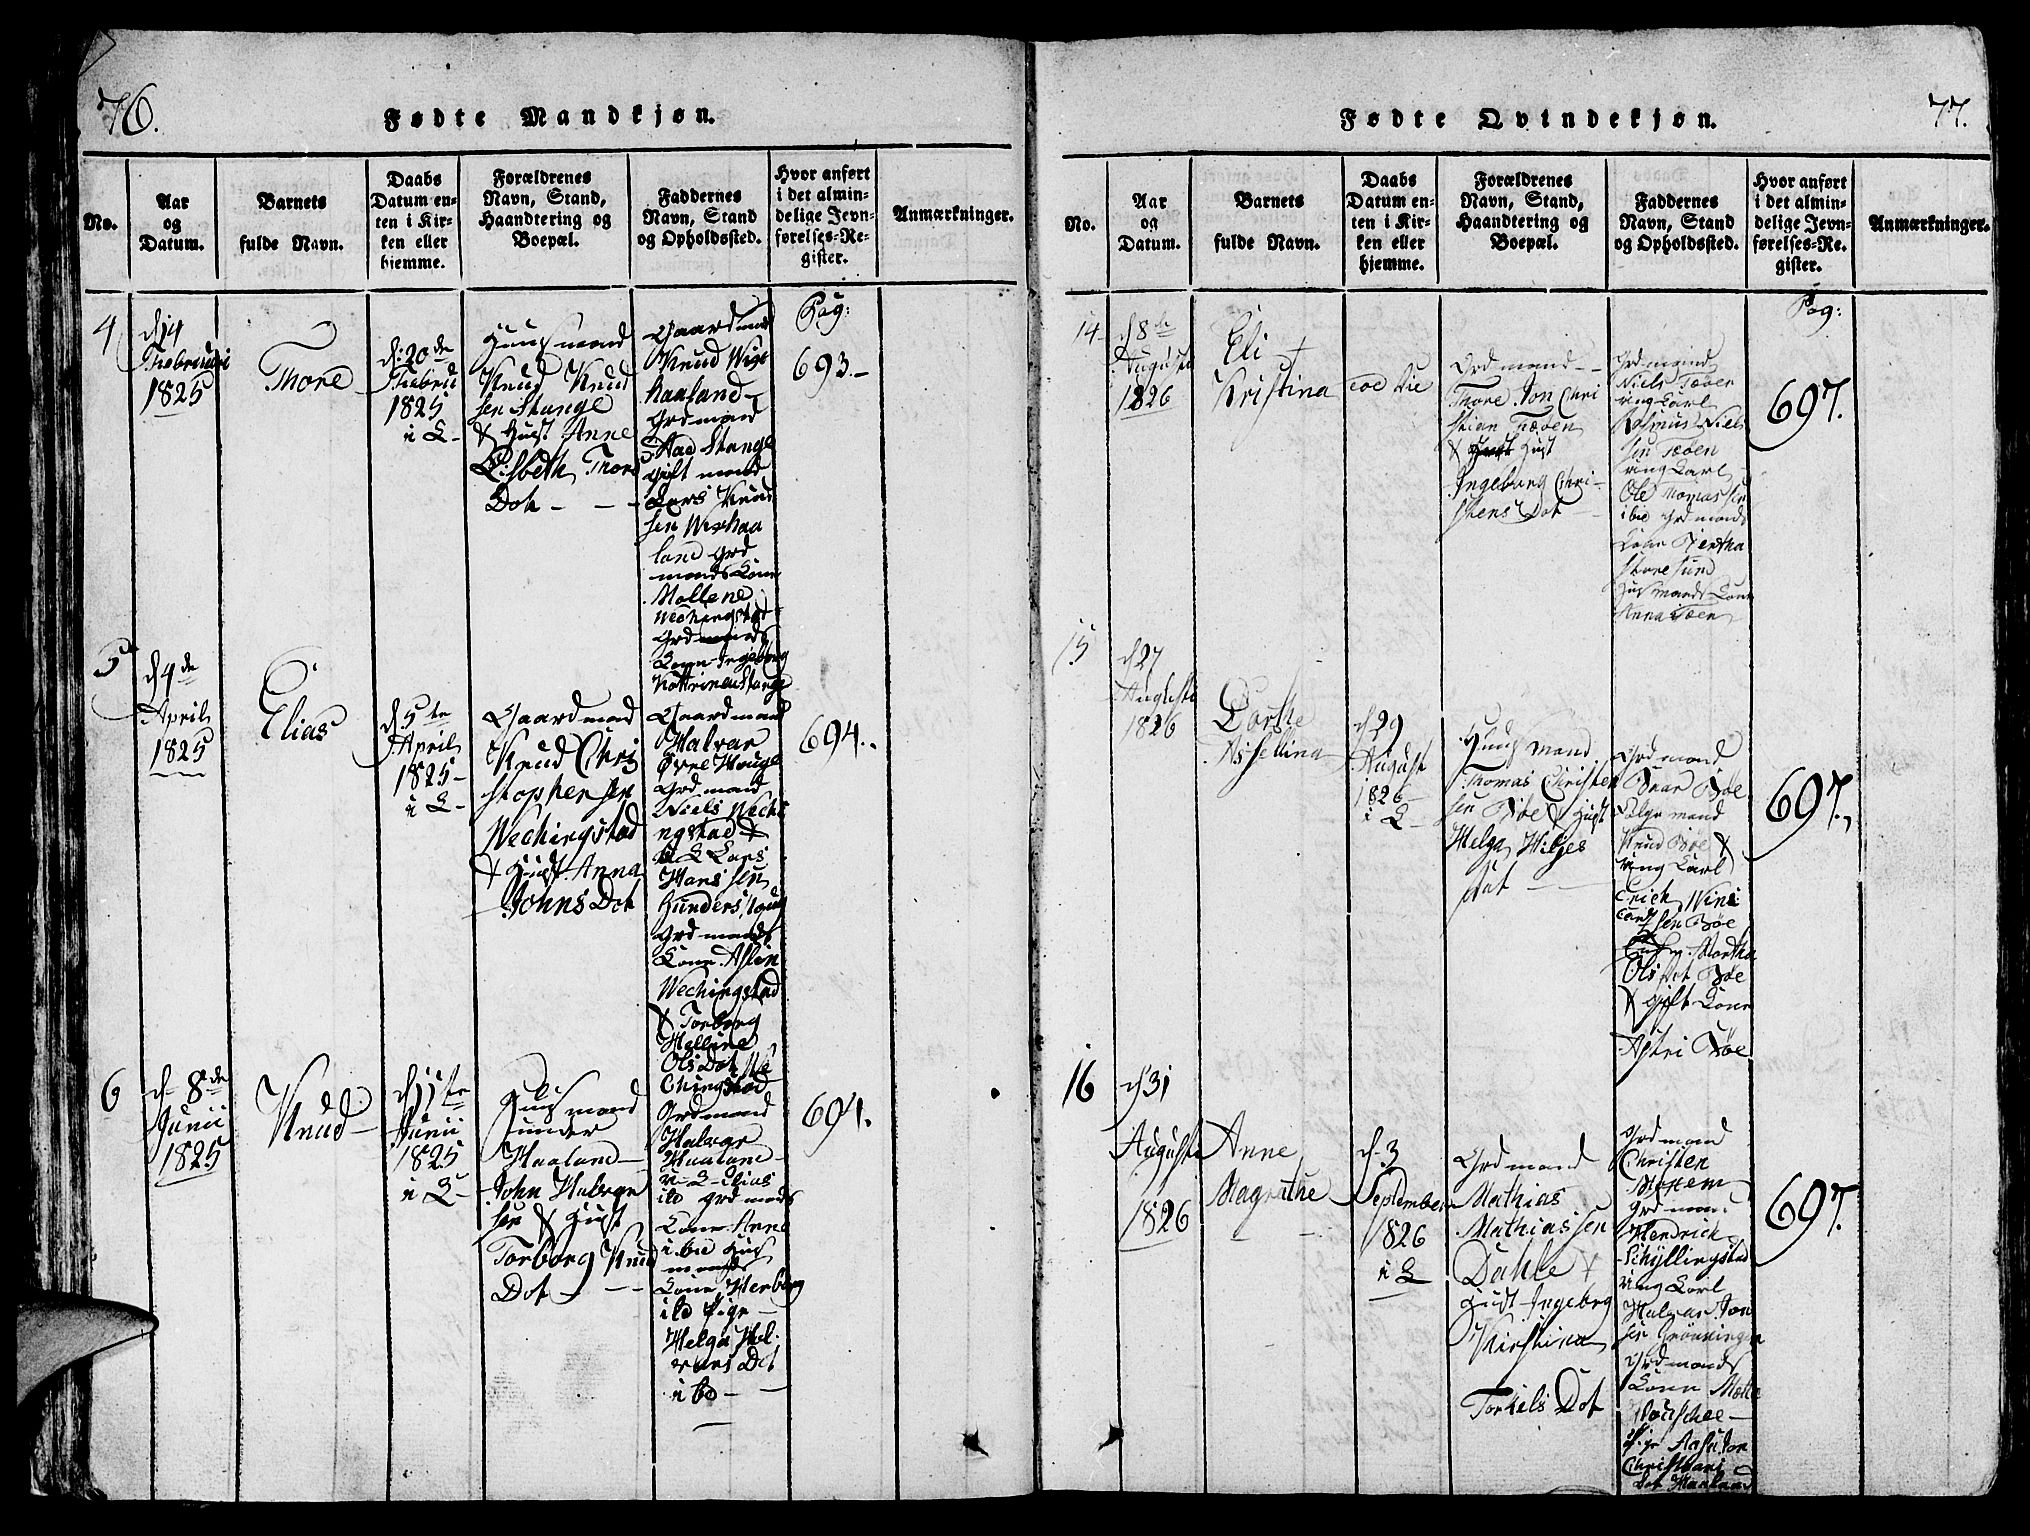 76.
Fødte Mandkjøn.
No.
Aar
og
Datum.
Barnets
fulde Navn.
Daabs
Datum en-
ten i Kir-
ken eller
hjemme.
Forældrenes
Navn, Stand,
Haandtering og
Boepæl.
Faddernes
Navn, Stand
og Opholdssted.
Hvor anført
i det almin-
delige Jevn-
førelses-Re-
gister.
Anmærkninger.
4
d 14
Febrüari
1825
Thore
d: 20de
Febrü
1825
i K
Huusmand
Knud Knud
sen Stange
& Hust Anne
Lisbeth Thors
Dot
Gaardmand
Knud Wist
haaland
Grdmand
Aad Stange
gift mand
Lars Knud
sen Wishaa
land Grd
mands Kone
Mallene
Wechingstad
Grdmands
Kone Ingeborg
Kattrine Stange
Pag:
693.
5
d 4de
April
1825
Elias
d 5te
April
1825
i K
Gaardmand
Knud Chri
stophersen
Wechingstad
& Hust Anna
Johns Dot
Gaardmand
Halvar
Øvre Houge
Grdmand
Niels Wechi
ngstad &
Lars
Hans sen
Grdmands
Kone Aslen
Wechingstad
& Torborg
Helline
Ols Dot We
chingstad
694.
6
d 8de
Junii
1825
Knud
d 11te
Junii
1825
i K
Huusmand
under
Haaland
John Halvar
sen & Hust
Torborg Knud
Dot
Grdmand
Halvar
Haaland
Elias
ibd Grdmands
Kone Anne
ibd Huus
mands
Kone Herborg
ibd Pige
Helga Hal-
vars Dot
ibd
694.
77.
Fødte Qvindekjøn.
No.
Aar
og
Datum.
Barnets
fulde Navn.
Daabs
Datum en-
ten i Kir-
ken eller
hjemme.
Forældrenes
Navn, Stand,
Haandtering og
Boepæl.
Faddernes
Navn, Stand
og Opholdssted.
Hvor anført
i det almin-
delige Jevn-
førelses-Re-
gister.
Anmærkninger.
14
d 8de
Augusti
1826
Eli
Kristina
Grdmand
Thore Jon Chri
stian
& Hust
Ingeborg Chri-
stens Dot
Grdmand
Niels
ung Karl
Rasmus Niel
sen
ung Karl
Ole Thomassen
ibd Grdmands
Kone Bertha
Storesund
Huusmands Kone
Anna
Pag:
697.
15
d 27
Augusti
1826
Dorthe
Assellina
d 29
August
1826
i K
Huusmand
Thomas Christen
sen Bøe & Hust
Helga Wiljes
Dat
Grdmand
Bøe
Følge mand
Knud Bøe &
ung Karl
Erich
sen Bøe
Martha
Ols Dot Bøe
& Gift Kone
Astri Bøe
697.
16
d 31
Augusti
1826
Anne
Magrethe
d 3
September
1826
i K
Grdmand
Mathias
Mathiassen
Dahle &
Hust Ingeborg
Kirstina
Torkels Dot
Grdmand
Christen
Grdmand
Hendrich
Schyllingstad
ung Karl
Halvar Jon
sen Grönningen
Grdmands
Kone Mette
Pige
Christians
Dot
697.